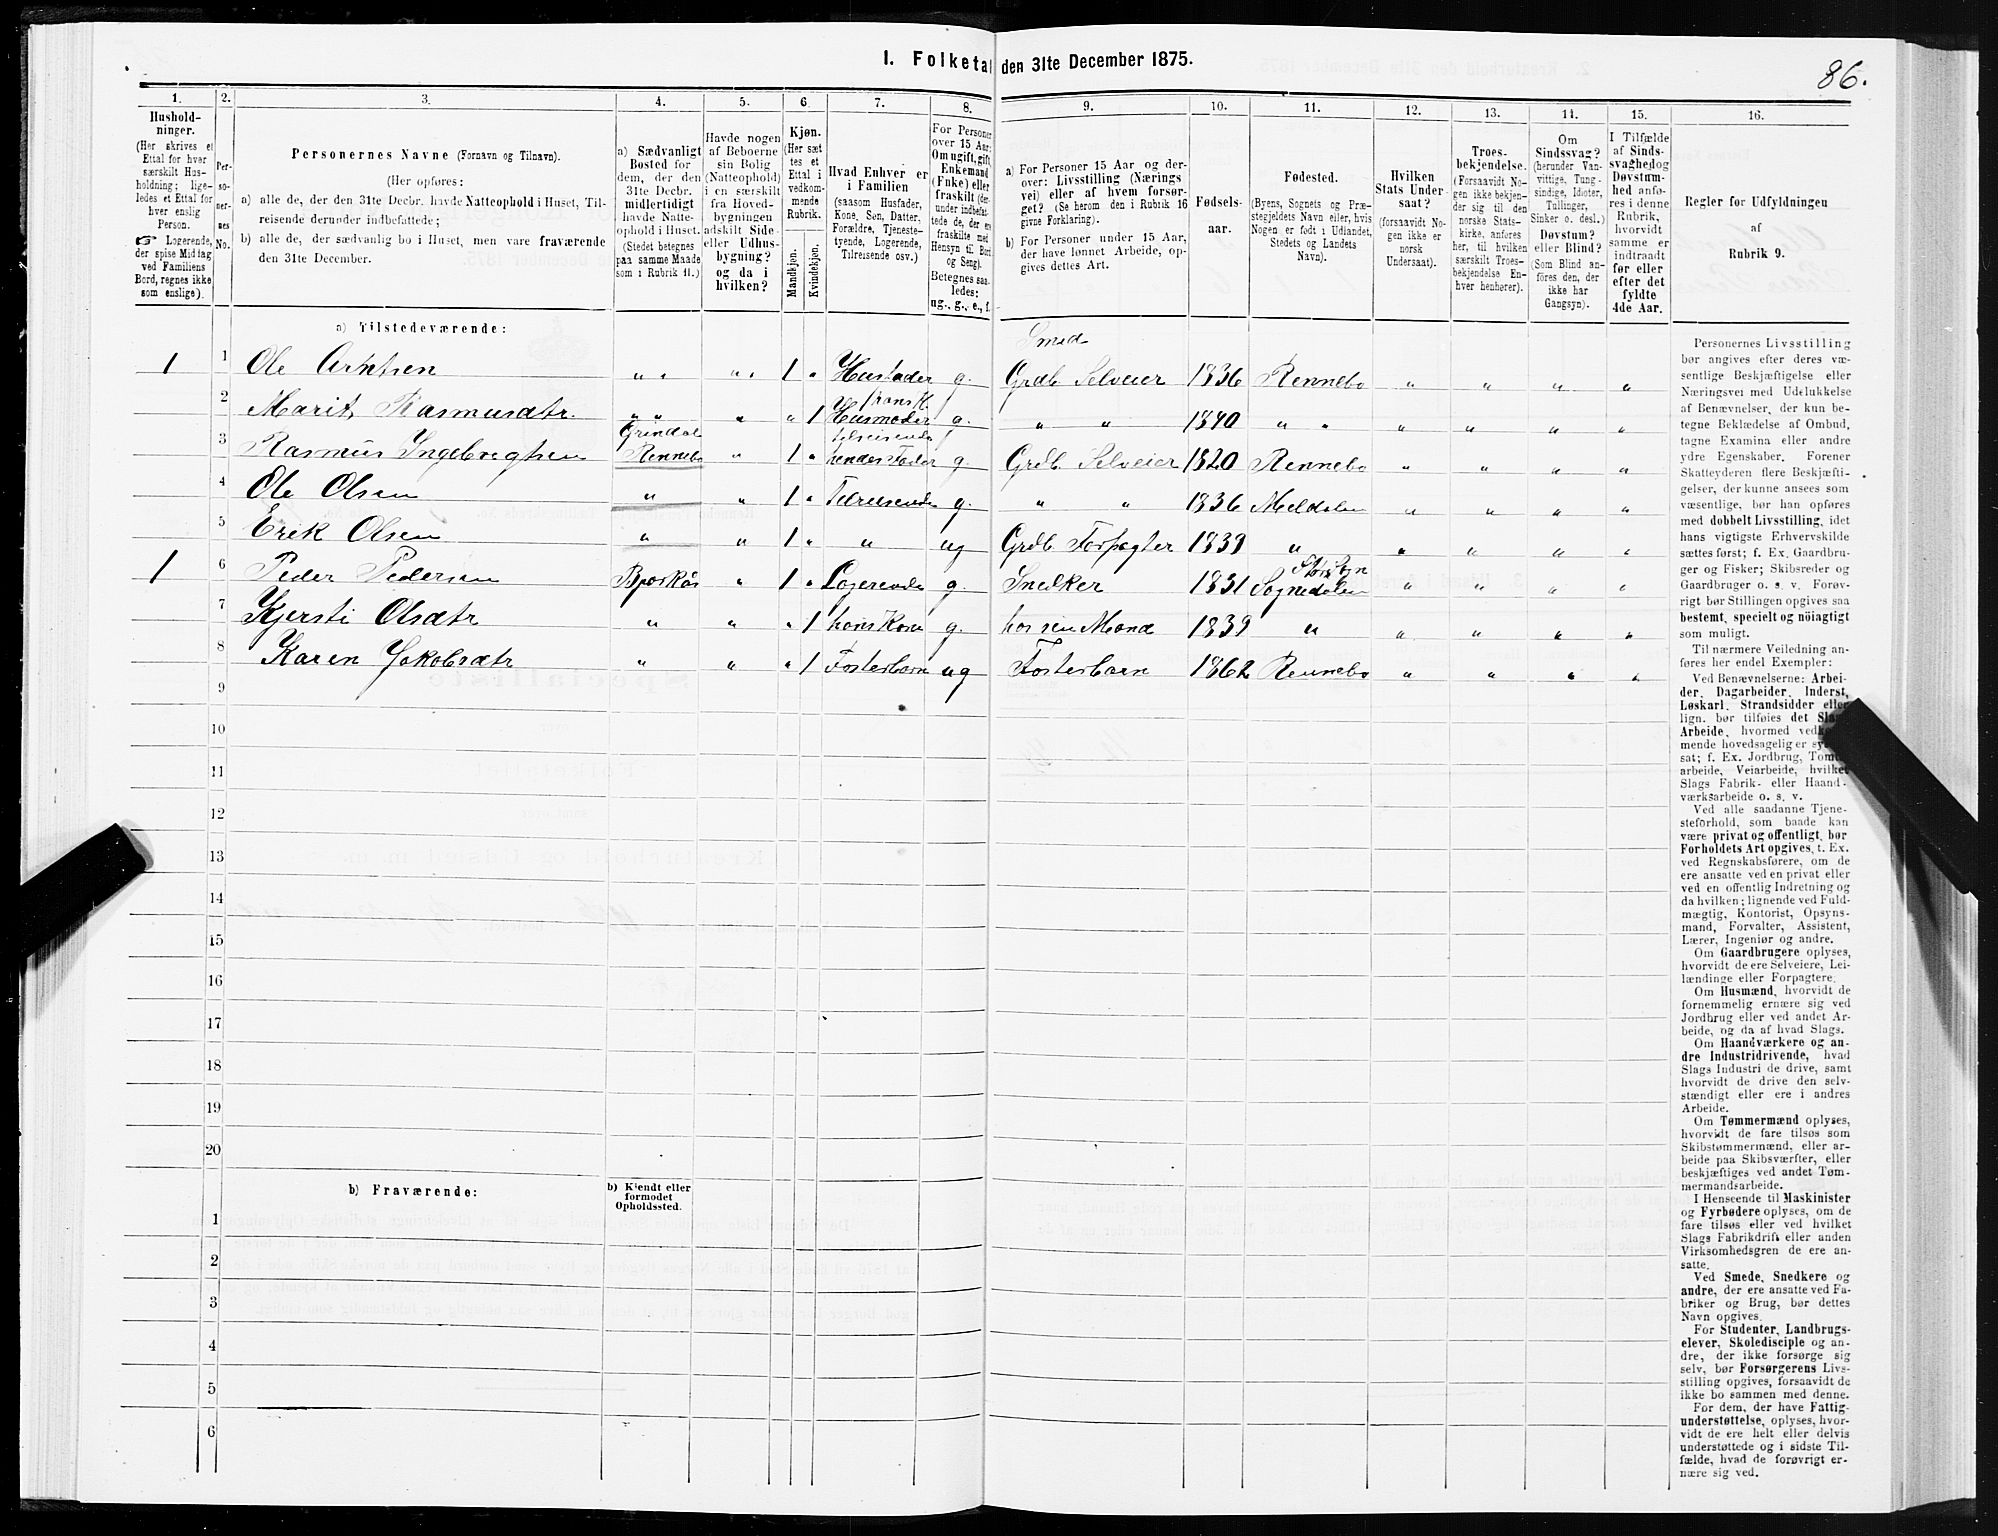 I. Folketal den 31te December 1875.
86.
1. 2. 3. 4. 5. 6. 7. 8. 9. 10. 11. 12. 13. 14. 15. 16.
Hushold-
ninger.
(Her skrives et
Ettal for hver
særskilt Hus-
holdning; lige-
ledes et Ettal for
hver enslig
Person.
☞ Logerende,
der spise Middag
ved Familiens
Bord, regnes ikke
som enslige).
Per-
so-
ner-
nes
No.
Personernes Navne (Fornavn og Tilnavn).
(Her opføres:
a) alle de, der den 31te Decbr. havde Natteophold i Huset, Til-
reisende derunder indbefattede;
b) alle de, der sædvanlig bo i Huset, men vare fraværende
den 31te December.
a) Sædvanligt
Bosted for
dem, der den
31te Decbr.
midlertidigt
havde Natte-
ophold i Huset.
(Stedet betegnes
paa samme Maade
som i Rubrik 11.)
Havde nogen
af Beboerne
sin Bolig
(Natteophold)
i en særskilt
fra Hoved-
bygningen
adskilt Side-
eller Udhus-
bygning?
og da i
hvilken?
Kjøn.
(Her sæt
tes et
Ettal i
vedkom-
mende
Rubrik.
Mandkjøn.
Kvindekjøn.
Hvad Enhver er
i Familien
(saasom Husfader,
Kone, Søn, Datter,
Forældre, Tjeneste-
tyende, Logerende,
Tilreisende osv.)
For Personer
over 15 Aar:
Om ugift, gift,
Enkemand
(Enke) eller
fraskilt (her-
under indbefat-
tede de, der ere
fraskilte med
Hensyn til Bord
og Seng).
Betegnes saa-
ledes:
ug., g., e., f.
a) For Personer 15 Aar og der-
over: Livsstilling (Nærings
vei) eller af hvem forsør-
get? (Se herom den i Rubrik 16
givne Forklaring).
b) For Personer under 15 Aar,
der have lønnet Arbeide, op-
gives dettes Art.
Fødsels-
aar.
Fødested.
(Byens, Sognets og Præ-
stegjeldets Navn eller, hvis
Nogen er født i Udlandet,
Stedets og Landets
Navn).
Hvilken
Stats Under-
saat?
(forsaavidt No-
gen ikke er
norsk
Undersaat).
Troes-
bekjendelse.
(Forsaavidt No-
gen ikke bekjen-
der sig til den
norske Stats-
kirke, anføres
her, til hvilken
særskilt Troes-
bekjendelse En-
hver henhører).
Om
Sindssvag?
(herunder Van-
vittige, Tung-
sindige, Idioter,
Tullinger,
Sinker o. desl.)
Døvstum?
eller Blind?
(Som Blind an-
føres den, der
ikke har
Gangsyn).
I Tilfælde
af Sinds-
svaghed og
Døvstum-
hed anfø-
res i denne
Rubrik,
hvorvidt
samme er
indtraadt
før eller
efter det
fyldte
4de Aar.
Regler for Udfyldningen
af
Rubrik 9.
a) Tilstedeværende:
1 1 Ole Arntsen „ „ „ „ 1 „ Husfader g. Smed Grdb Selveier 1836 Rennebo „ „ „ „
2 Marit Rasmusdtr. „ „ „ „ 1 hans K. Husmoder g. „ „ 1840 „ „ „ „ „ „
3 Rasmus Ingebregtsen Grindal Rennebo „ 1 „ tilreisende hendes Fader g. Grdb Selveier 1820 Rennebo „ „ „ „
4 Ole Olsen „ „ 1 „ Tilreisende g. „ „ 1836 Meldalen „ „ „ „
5 Erik Olsen „ „ 1 „ „ ug Grdb Forpagter 1839 „ „ „ „ „
1 6 Peder Pedersen Bjørkås „ 1 „ Logerende g. Snedker 1831 Sognedalen „ „ „ „
7 Kjersti Olsdtr „ „ „ 1 hans Kone g. hos sin Mand 1839 „ „ „ „ „
8 Karen Jakobsdtr „ „ „ 1 Fosterbarn ug Fosterbarn 1862 Rennebo „ „ „ „
9
10
11
12
13
14
15
16
17
18
19
20
b) Fraværende:
b) Kjendt eller
formodet
Opholdssted.
1
2
3
4
5
6
Personernes Livsstilling
bør angives efter deres væ-
sentlige Beskjæftigelse eller
Næringsvei med Udelukkelse
af Benævnelser, der kun be-
tegne Beklædelse af Ombud,
tagne Examina eller andre
ydre Egenskaber. Forener
Skatteyderen flere Beskjæfti-
gelser, der kunne ansees som
væsentlige, bør han opføres
med dobbelt Livsstilling, idet
hans vigtigste Erhvervskilde
sættes først; f. Ex. Gaardbru-
ger og Fisker; Skibsreder og
Gaardbruger o. s. v. Forøv-
rigt bør Stillingen opgives saa
bestemt, specielt og nöiagtigt
som muligt.
Til nærmere Veiledning an-
føres her endel Exempler:
Ved Benævnelserne: Arbei-
der, Dagarbeider, Inderst,
Løskarl, Strandsidder eller
lign. bør tilføies det Slags
Arbeide, hvormed vedkom-
mende hovedsagelig er syssel-
sat; f. Ex. Jordbrug, Tomte-
arbeide, Veiarbeide, hvilket
Slags Fabrik- eller Haand-
værksarbeide o. s. v.
Ved alle saadanne Tjene-
steforhold, som baade kan
være privat og offentligt, bør
Forholdets Art opgives, t. Ex.
ved Regnskabsførere, om de
ere ansatte ved en privat eller
ved en offentlig Indretning og
da hvilken; lignende ved Fuld-
mægtig, Kontorist, Opsyns-
mand, Forvalter, Assistent,
Lærer, Ingeniør og andre.
Om Gaardbrugere oplyses,
hvorvidt de ere Selveiere, Lei-
lændinge eller Forpagtere.
Om Husmænd, hvorvidt de
fornemmelig ernære sig ved
Jordbrug eller ved andet Ar-
beide, og da af hvad Slags.
Om Haandværkere og an-
dre Industridrivende, hvad
Slags Industri de drive, samt
hvorvidt de drive den selv-
stændigt eller ere i andres
Arbeide.
Om Tømmermænd oplyses,
hvorvidt de fare tilsøs som
Skibstømmermænd, eller ar-
beide paa Skibsværfter, eller
beskjæftiges ved andet Tøm-
mermandsarbeide.
I Henseende til Maskinister
og Fyrbødere oplyses, om de
fare tilsøs eller ved hvilket
Slags Fabrikdrift eller anden
Virksomhedsgren de ere an-
satte.
Ved Smede, Snedkere og
andre, der ere ansatte ved Fa-
briker og Brug, bør dettes
Navn opgives.
For Studenter, Landbrugs-
elever, Skoledisciple og an-
dre, der ikke forsørge sig
selv, bør Forsørgerens Livs-
stilling opgives, forsaavidt de
ikke bo sammen med denne.
For dem, der have Fattig-
understøttelse, oplyses, hvor-
vidt de ere helt eller delvis
understøttede og i sidste Til-
fælde, hvad de forøvrigt er-
nære sig ved.